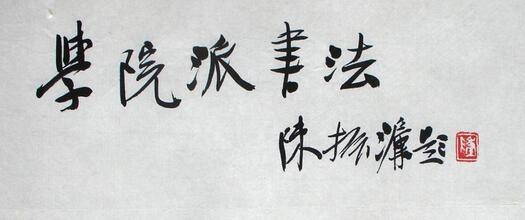 學院派書法
陳振濂題